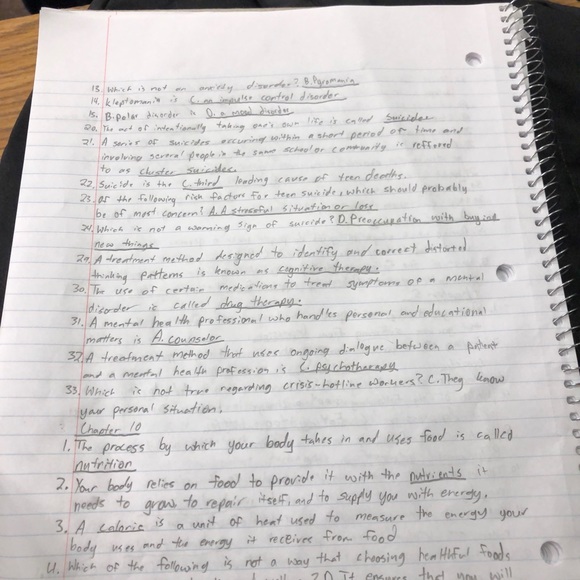 13. Which is not an anxiety disorder? B. Pyromania
14. kleptomania is C. an impulse control disorder
15. Bipolar disorder is D. a mood disorder
20. The act of intentionally taking one's own life is called Suicide.
21. A series of suicides occuring within a short period of time and
involving several people in the same school or community is reffered
to as cluster suicides.
22. Suicide is the C. third leading cause of teen deaths.
23. Of the following risk factors for teen suicide, which should probably
be of most concern? A. A stressful situation or loss
24. Which is not a warning sign of suicide? D. Preoccupation with buying
new things
29. A treatment method designed to identify and correct distorted
thinking patterns is known as cognitive therapy.
30. The use of certain medications to treat symptoms of a mental
disorder is called drug therapy.
31. A mental health professional who handles personal and educational
matters is A. counselor
32. A treatment method that uses ongoing dialogue between a patient
and a mental health profession is C. Psychotherapy
33. Which is not true regarding crisis-hotline workers? C. They know
your personal situation.
Chapter 10
1. The process by which your body takes in and uses food is called
nutrition
2. Your body relies on food to provide it with the nutrients it
needs to grow to repair itself, and to supply you with energy.
3. A calorie is a unit of heat used to measure the energy your
body uses and the energy it receives from food
4. Which of the following is not a way that choosing healthful foods
? D. It ensures that you will